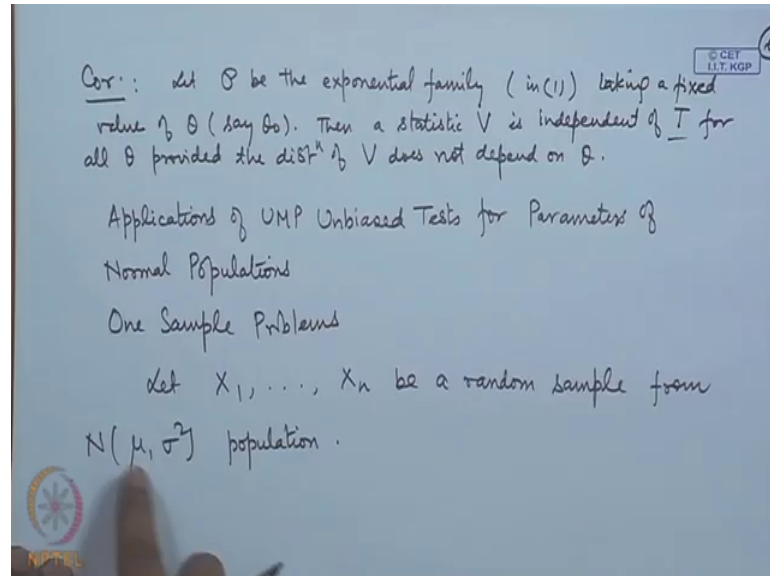 © CET
I.I.T. KGP
Cor.: Let 𝒫 be the exponential family (in (1)) taking a fixed
value of θ (say θ₀). Then a statistic V is independent of T for
all θ provided the distⁿ of V does not depend on θ.
Applications of UMP Unbiased Tests for Parameters of
Normal Populations
One Sample Problems
Let X₁, ..., Xₙ be a random sample from
N(μ, σ²) population.
NPTEL